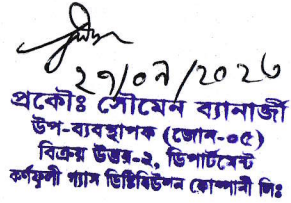 ২৭/০৮/২০২৩
প্রকৌঃ সৌমেন ব্যানার্জী
উপ-ব্যবস্থাপক (জোন-০৫)
বিক্রয় উত্তর-২, ডিপার্টমেন্ট
কর্ণফুলী গ্যাস ডিষ্ট্রিবিউশন কোম্পানী লিঃ